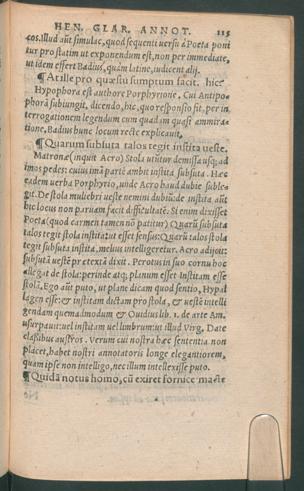 HEN. GLAR. ANNOT. 115
cos. Illud aūt simulac, quod sequenti uersu à Poeta poni
tur pro statim ut exponendum est, non per immediate,
ut idem effert Badius, quàm latine, iudicent alij.
¶ At ille pro quæstu sumptum facit. hic
Hypophora est authore Porphyrione. Cui Antipo-
phorā subiungit, dicendo, hic, quo responsio fit, per in
terrogationem legendum cum quadam quasi admira-
tione, Badius hunc locum recte explicauit.
¶ Quarum subsuta talos tegit instita ueste.
Matronæ (inquit Acro) Stola utūtur demissa usq; ad
imos pedes: cuius imā partē ambit instita subsuta. Hæc
eadem uerba Porphyrio, unde Acro haud dubie suble-
git. De stola muliebri ueste nemini dubiū: de instita aūt
hic locus non paruam facit difficultatē. Si enim dixisset
Poeta (quod carmen tamen nō patitur) Quarū subsuta
talos tegit stola instita: ut esset sensus: Quarū talos stola
tegit subsuta instita, melius intelligeretur. Acro adijcit:
subsutā uestē prætextā dixit. Perotus in suo cornu hoc
allegat de stola: perinde atq; planum esset Institam esse
stolā. Ego aūt puto, ut plane dicam quod sentio, Hypal
lagen esse: & institam dictam pro stola, & ueste intelli
gendam quemadmodum & Ouidius lib. 1. de arte Am.
usurpauit: uel institam uel limbrum: ut illud Virg. Date
classibus austros. Verum cui nostra hæc sententia non
placet, habet nostri annotatoris longe elegantiorem,
quam ipse non intelligo, nec illum intellexisse puto.
¶ Quidā notus homo, cū exiret fornice macte